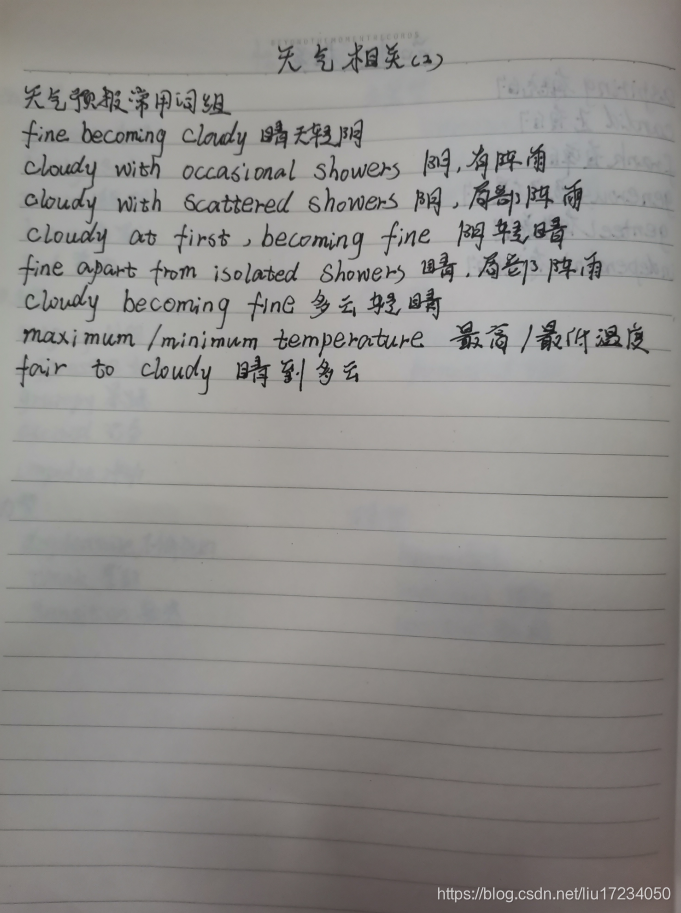 天气相关(2)
天气预报常用词组
fine becoming cloudy 晴天转阴
cloudy with occasional showers 阴,有阵雨
cloudy with scattered showers 阴,局部阵雨
cloudy at first, becoming fine 阴转晴
fine apart from isolated showers 晴,局部阵雨
cloudy becoming fine 多云转晴
maximum/minimum temperature 最高/最低温度
fair to cloudy 晴到多云
https://blog.csdn.net/liu17234050